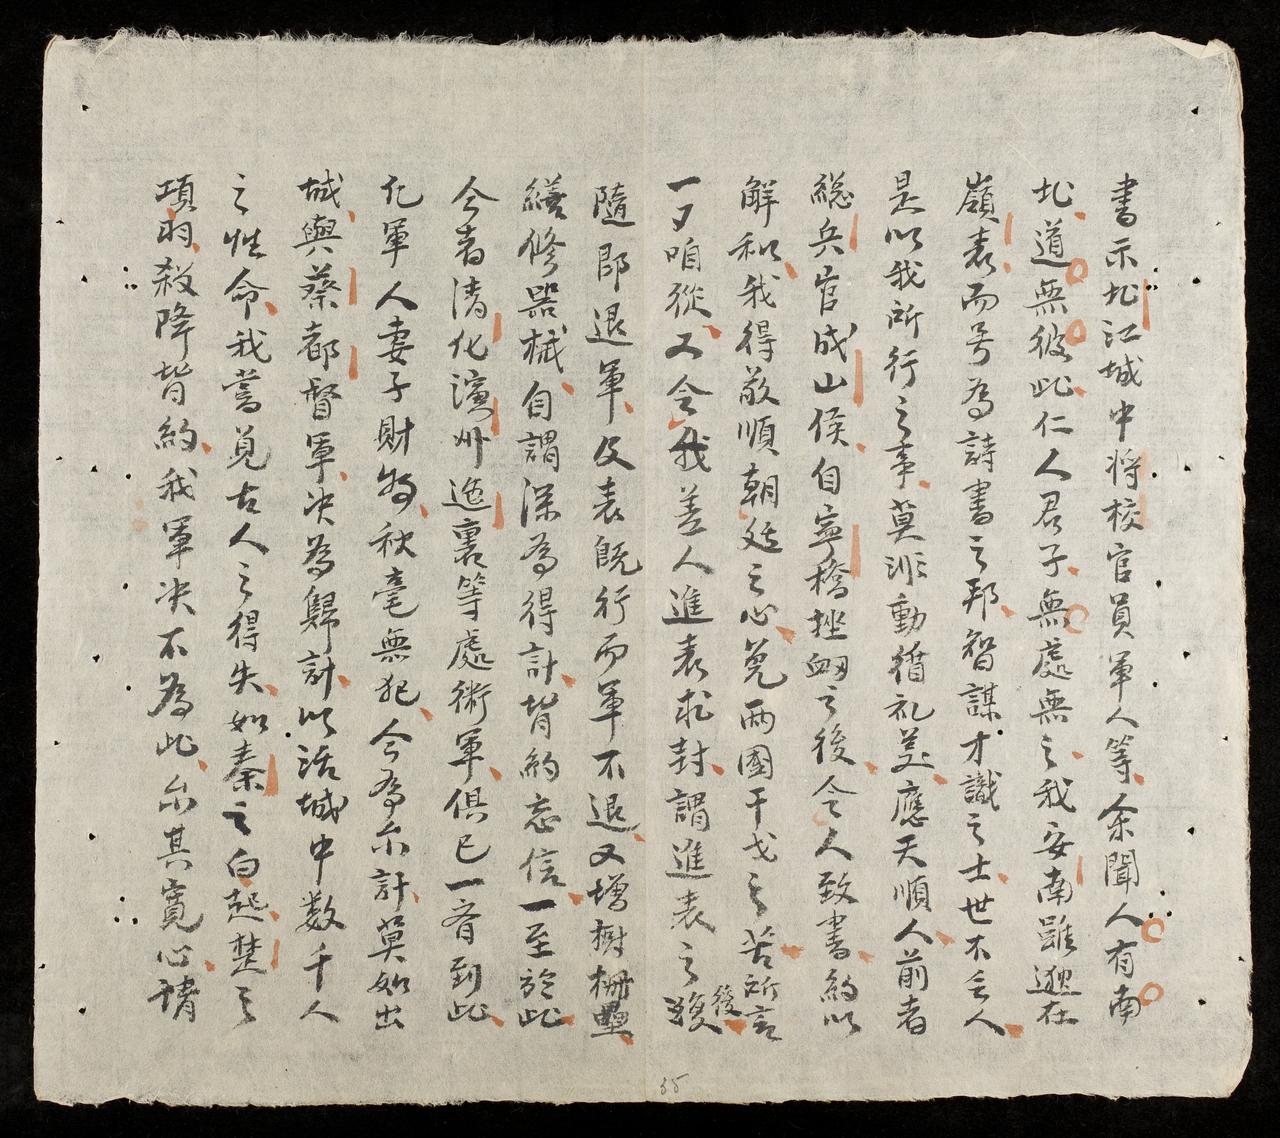 書示北江城中将校官員軍人等余聞人有南
北道無彼此仁人君子無處無之我安南雖遐在
嶺表而号為詩書之邦智謀才識之士世不乏人
是以我所行之事莫非動循礼義應天順人前者
總兵官成山侯自寧橋挫衂之後令人致書約以
解和我得敬順朝廷之心免两國干戈之苦所言
一一咱從又令我差人進表求封謂進表之後
後
隨即退軍及表既行而軍不退又增樹柵壘
繕修器械自謂深為得計背約忘信一至於此
今者清化演州迤裏等處衛軍俱已一齊到此
凡軍人妻子財物秋毫無犯今為尔計莫如出
城與蔡都督軍决為歸計以活城中数千人
之性命我嘗見古人之得失如秦之白起楚之
項羽殺降背約我軍决不為此尔其寬心請
35